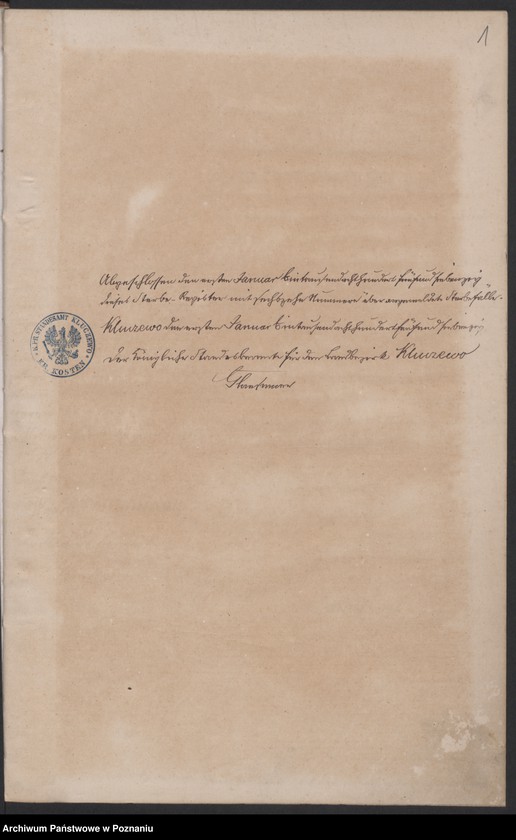 1
Abgeschlossen den ersten Januar Eintausendachthundert fünfundsiebenzig
dieses Sterbe-Register mit sechszehn Nummern der angemeldeten Sterbefälle.
Kluczewo den ersten Januar Eintausendachthundertfünfundsiebenzig
Der Königliche Standesbeamte für den Landbezirk Kluczewo
K.PR. STANDESAMT KLUCZEWO
KR. KOSTEN
Archiwum Państwowe w Poznaniu